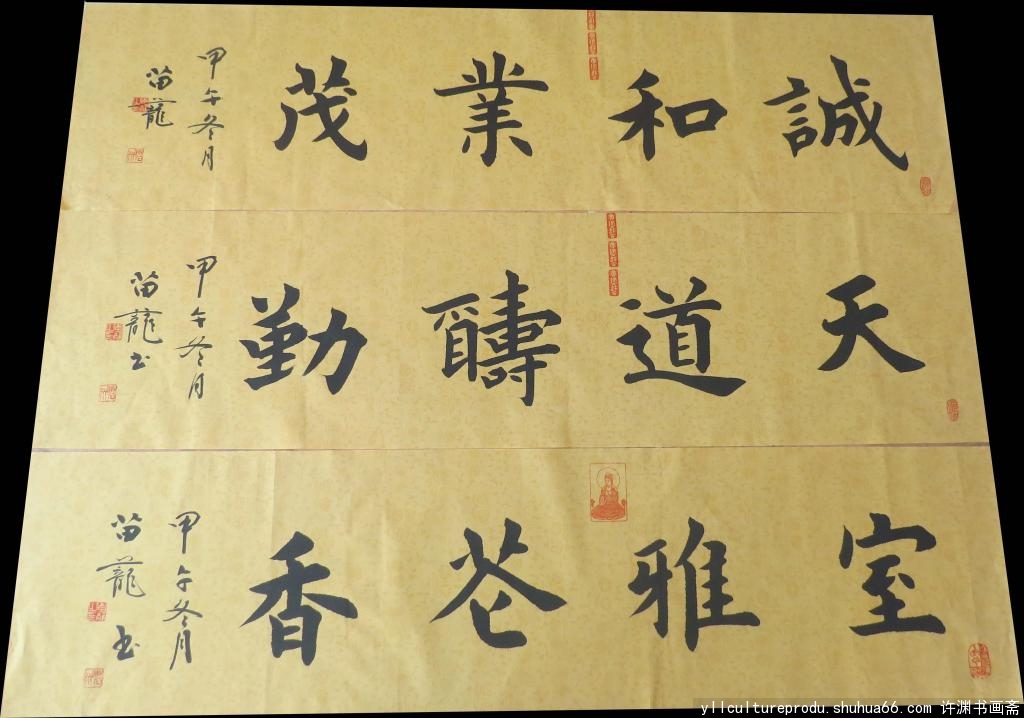 誠和業茂
甲午冬月
苗龍
天道酬勤
甲午冬月
苗龍书
室雅花香
甲午冬月
苗龍书
yllcultureprodu.shuhua66.com 许渊书画斋